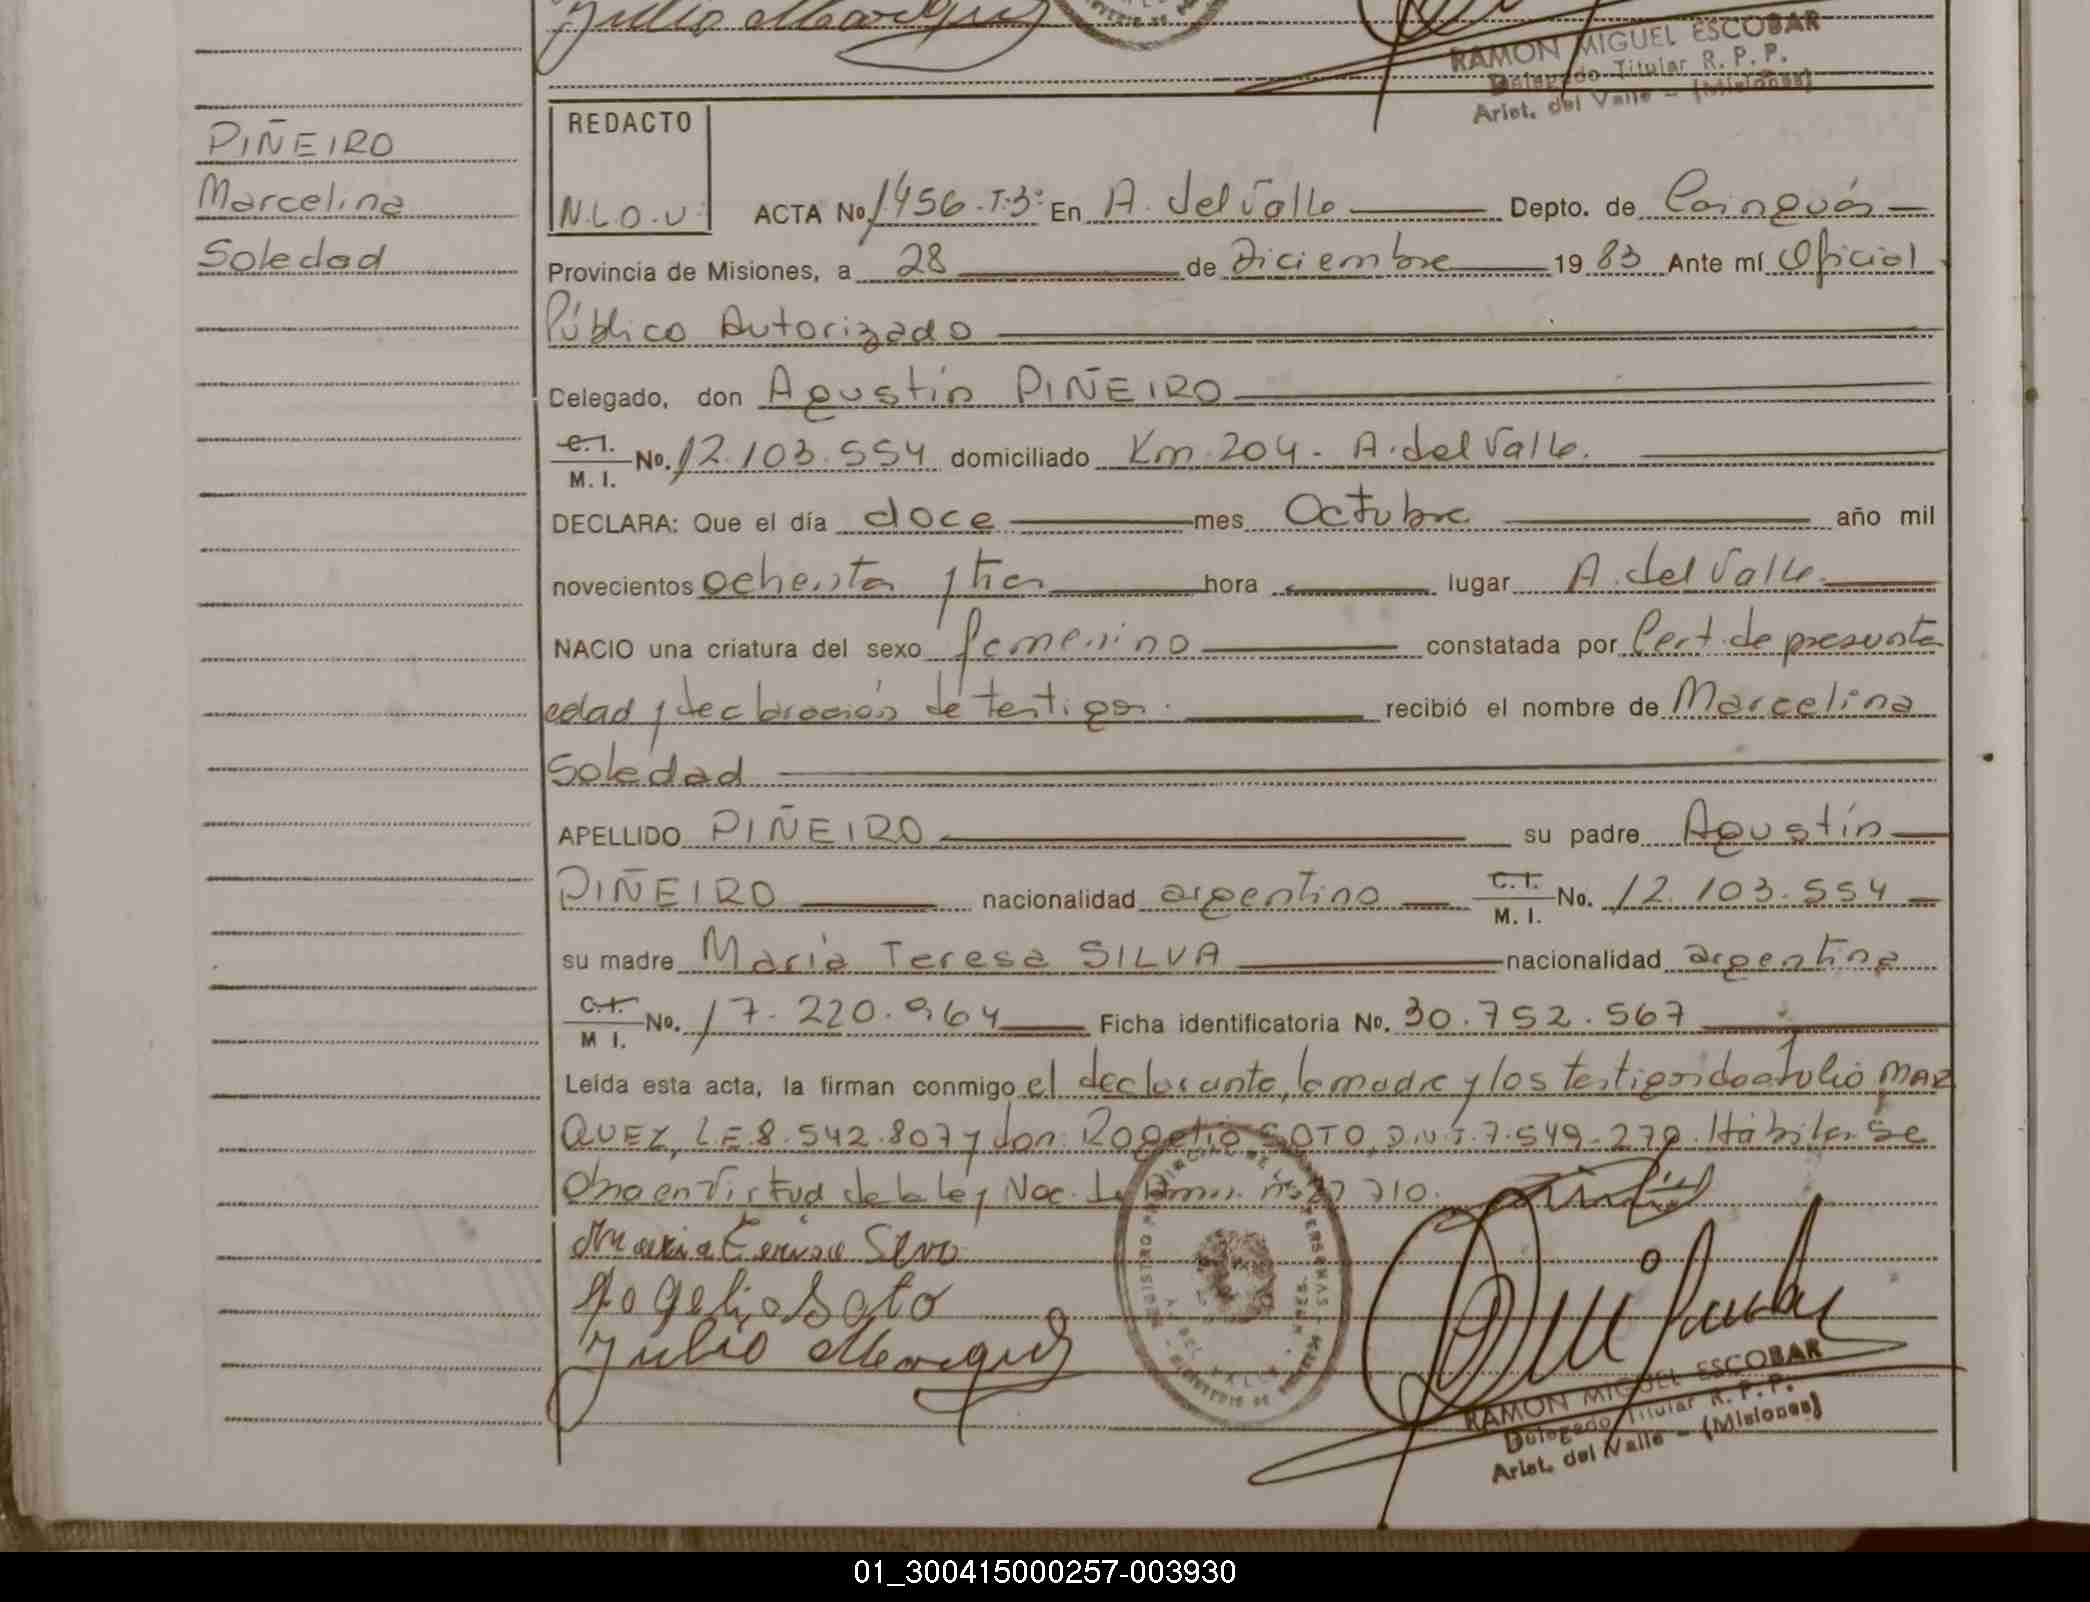 Julio Marquez
RAMON MIGUEL ESCOBAR
Delegado Titular R. P. P.
Arist. del Valle - (Misiones)
PIÑEIRO
Marcelina
Soledad
REDACTO
N.L.O.V.
ACTA No. 1456.T.3º En A. del Valle Depto. de Cainguás
Provincia de Misiones, a 28 de Diciembre 1983 Ante mí Oficial
Público Autorizado
Celegado, don Agustín PIÑEIRO
C.I. M.I. No. 12.103.554 domiciliado Km 204 - A. del Valle.
DECLARA: Que el día doce mes Octubre año mil
novecientos ochenta y tres hora lugar A. del Valle.
NACIO una criatura del sexo femenino constatada por Cert. de presunta
edad y declaración de testigos. recibió el nombre de Marcelina
Soledad
APELLIDO PIÑEIRO su padre Agustín
PIÑEIRO nacionalidad argentino C.I. M.I. No. 12.103.554
su madre María Teresa SILVA nacionalidad argentina
C.I. M I. No. 17.220.964 Ficha identificatoria No. 30.752.567
Leída esta acta, la firman conmigo el declarante, la madre y los testigos: don Julio MAR
QUEZ, L.E. 8.542.807 y don Rogelio SOTO, D.N.I. 7.549.279. Hábiles. Se
Obra en Virtud de la ley Nac. de 710.
Rogelio Soto
Julio Marquez
RAMON MIGUEL ESCOBAR
Delegado Titular R. P. P.
Arist. del Valle - (Misiones)
01_300415000257-003930